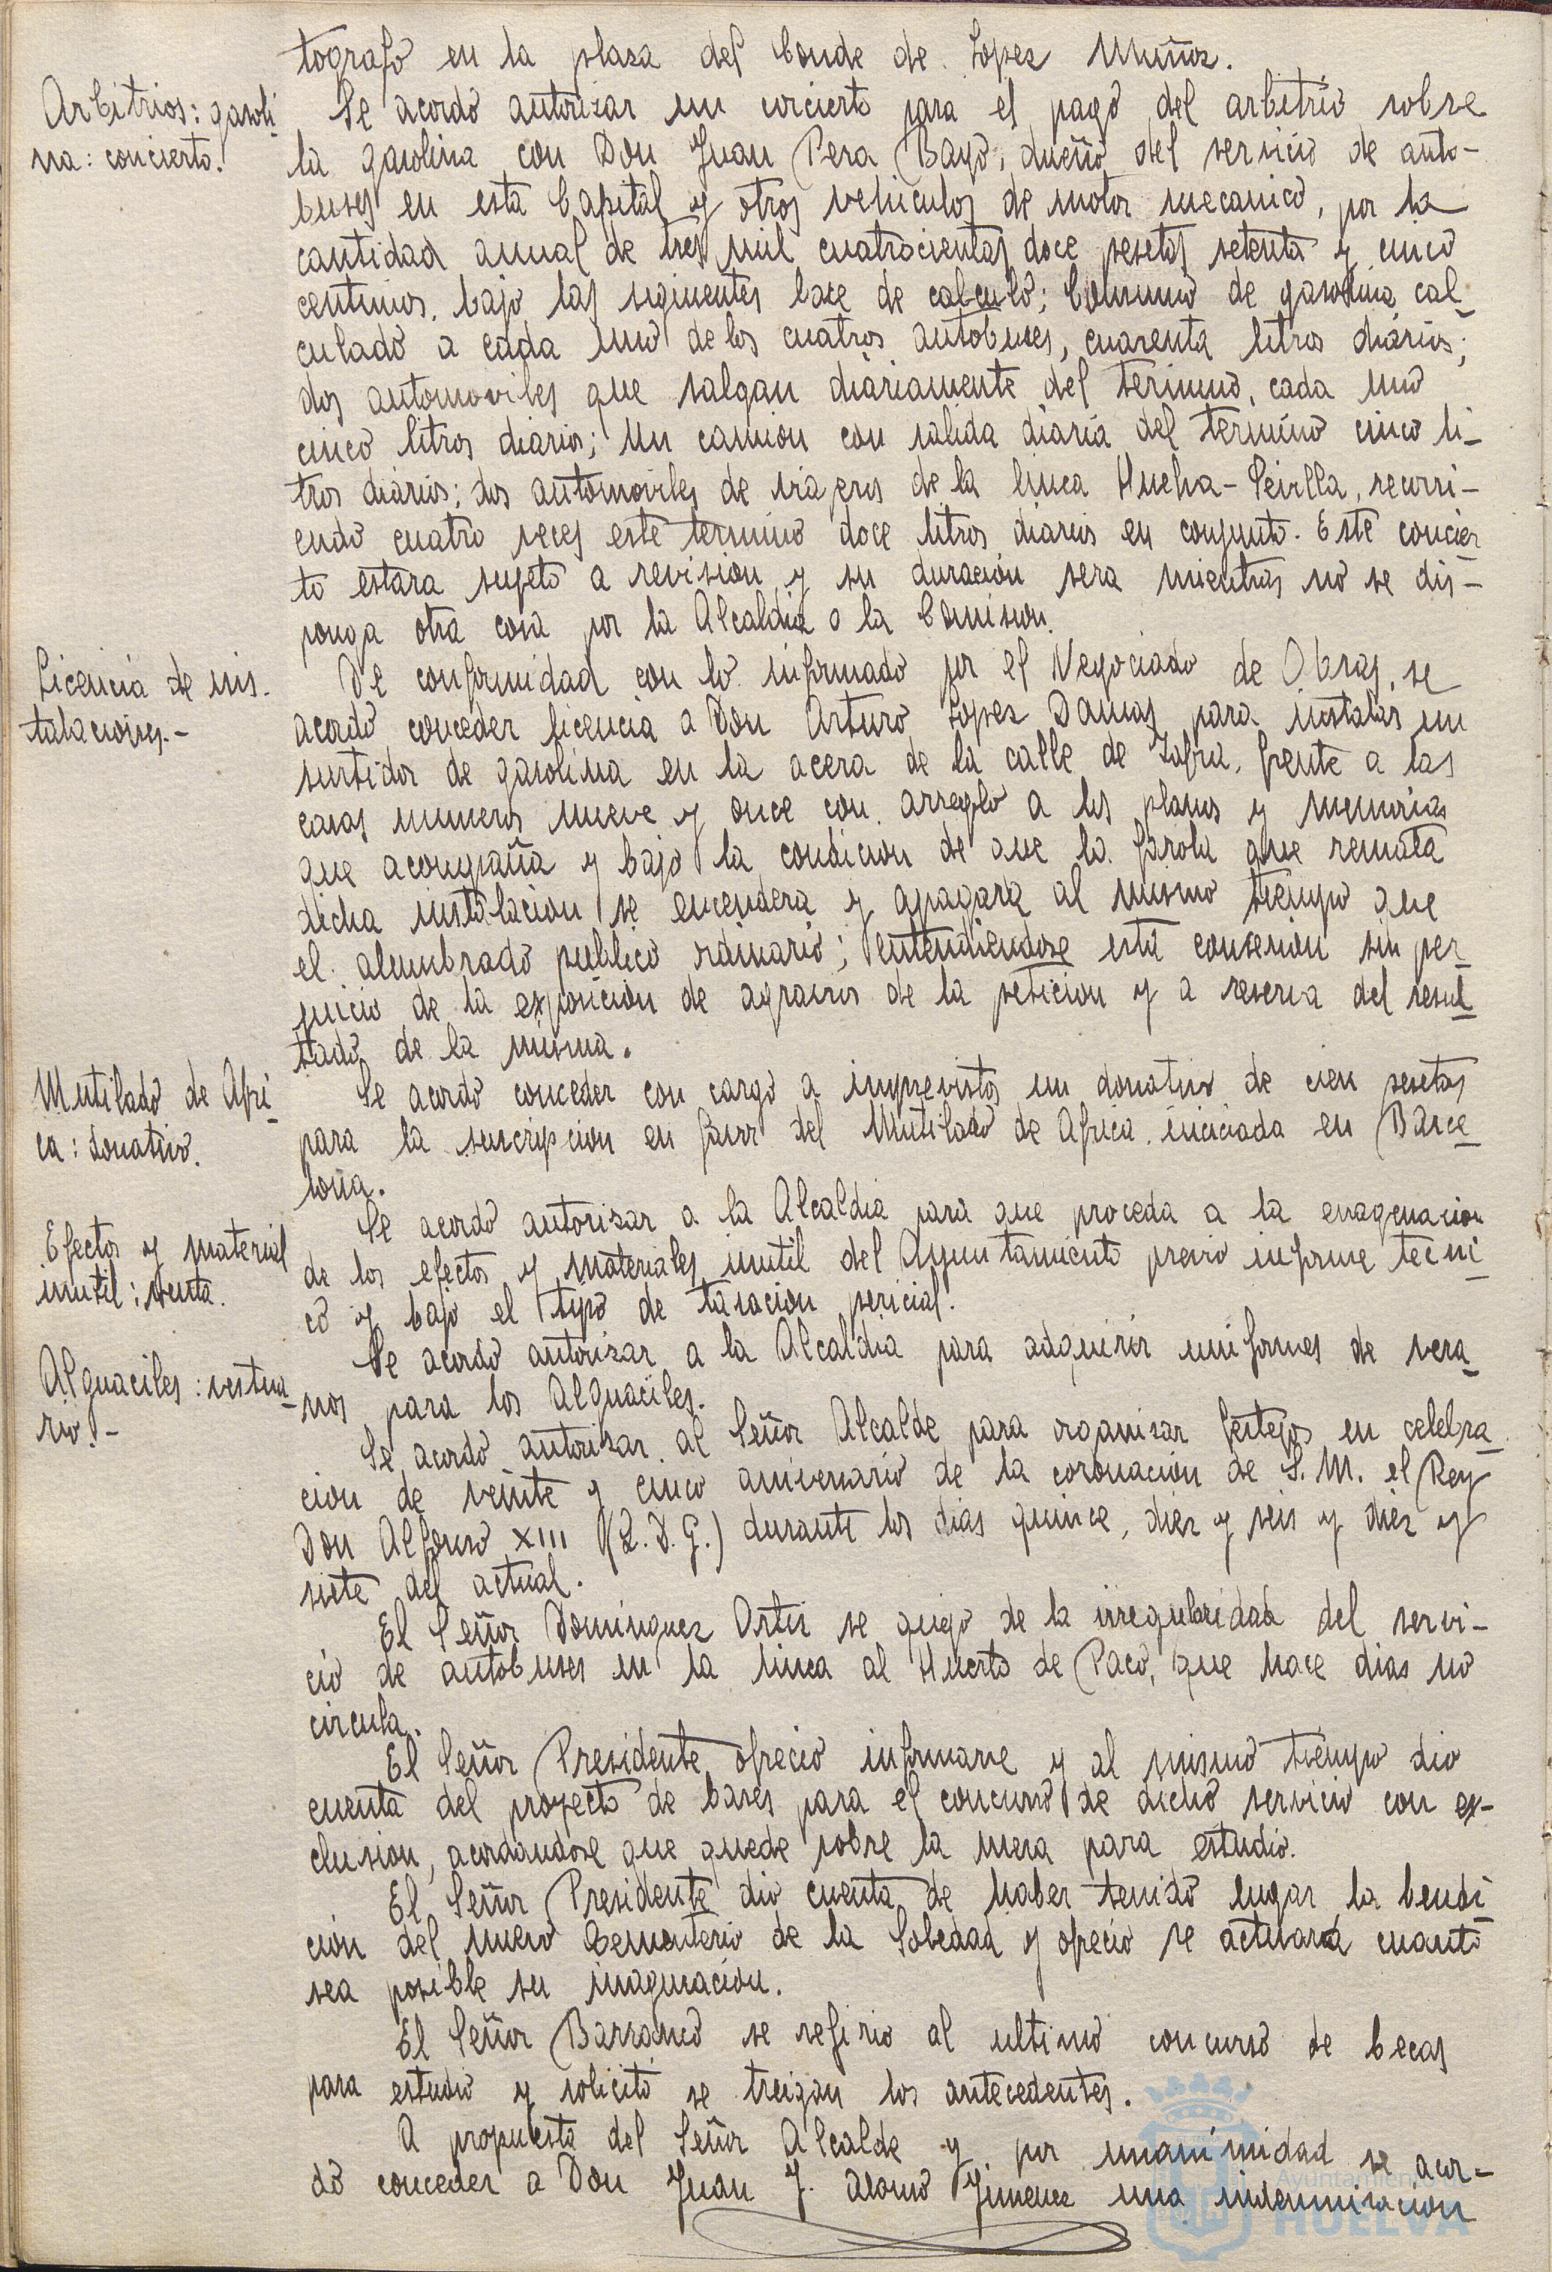 tografo en la plaza del Conde de Lopez Muñoz.
Arbitrios: gasoli-
na: concierto.
Se acordó autorizar un concierto para el pago del arbitrio sobre
la gasolina con Don Juan Pera Bayo, dueño del servicio de auto-
buses en esta Capital y otros vehiculos de motor mecanico, por la
cantidad anual de tres mil cuatrocientas doce pesetas setenta y cinco
centimos, bajo las siguientes base de calculo; Consumo de gasolina cal-
culado a cada uno de los cuatros autobuses, cuarenta litros diarios;
dos automoviles que salgan diariamente del termino, cada uno
cinco litros diarios; Un camion con salida diaria del termino cinco li-
tros diarios; dos automoviles de viajeros de la linea Huelva-Sevilla, recorri-
endo cuatro veces este termino doce litros diarios en conjunto. Este concier-
to estara sujeto a revision y su duracion sera mientras no se dis-
ponga otra cosa por la Alcaldia o la Comision.
Licencia de ins-
talaciones.-
De conformidad con lo informado por el Negociado de Obras, se
acordó conceder licencia a Don Arturo Lopez Damas para instalar un
surtidor de gasolina en la acera de la calle de Zafra, frente a las
casas numeros nueve y once con arreglo a los planos y memorias
que acompaña y bajo la condicion de que la farola que remata
dicha instalacion se encendera y apagara al mismo tiempo que
el alumbrado publico ordinario; entendiendose esta consesion sin per-
juicio de la exposicion de agravios de la peticion y a reserva del resul-
tado de la misma.
Mutilado de Afri-
ca: donativo.
Se acordó conceder con cargo a imprevistos un donativo de cien pesetas
para la suscripcion en favor del Mutilado de Africa iniciada en Barce-
lona.
Efectos y material
inutil: venta.
Se acordó autorizar a la Alcaldia para que proceda a la enagenacion
de los efectos y materiales inutil del Ayuntamiento previo informe tecni-
co y bajo el tipo de tasacion pericial.
Alguaciles: vestua-
rio.-
Se acordó autorizar a la Alcaldia para adquirir uniformes de vera-
nos para los Alguaciles.
Se acordó autorizar al Señor Alcalde para organizar festejos en celebra-
cion de veinte y cinco aniversario de la coronacion de S. M. el Rey
Don Alfonso XIII (Q. D. G.) durante los dias quince, diez y seis y diez y
siete del actual.
El Señor Dominguez Ortiz se quejo de la irregularidad del servi-
cio de autobuses en la linea al Huerto de Paco, que hace dias no
circula.
El Señor Presidente ofrecio informarse y al mismo tiempo dio
cuenta del proyecto de bases para el concurso de dicho servicio con ex-
clusion, acordandose que quede sobre la mesa para estudio.
El Señor Presidente dio cuenta de haber tenido lugar la bendi-
cion del nuevo Cementerio de la Soledad y ofrecio se activara cuanto
sea posible su inaguracion.
El Señor Barranco se refirio al ultimo concurso de becas
para estudio y solicitó se traigan los antecedentes.
A propuesta del Señor Alcalde y por unanimidad se acor-
dó conceder a Don Juan J. Alonso Jimenez una indemnizacion
Ayuntamiento
HUELVA